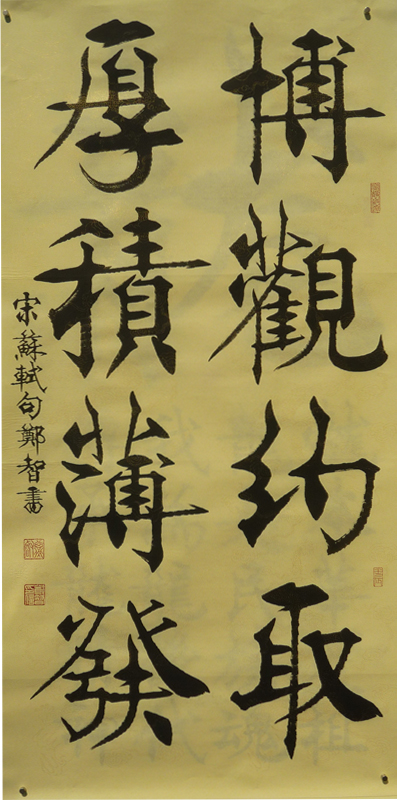 博觀约取
厚積薄發
宋蘇軾句鄭智書